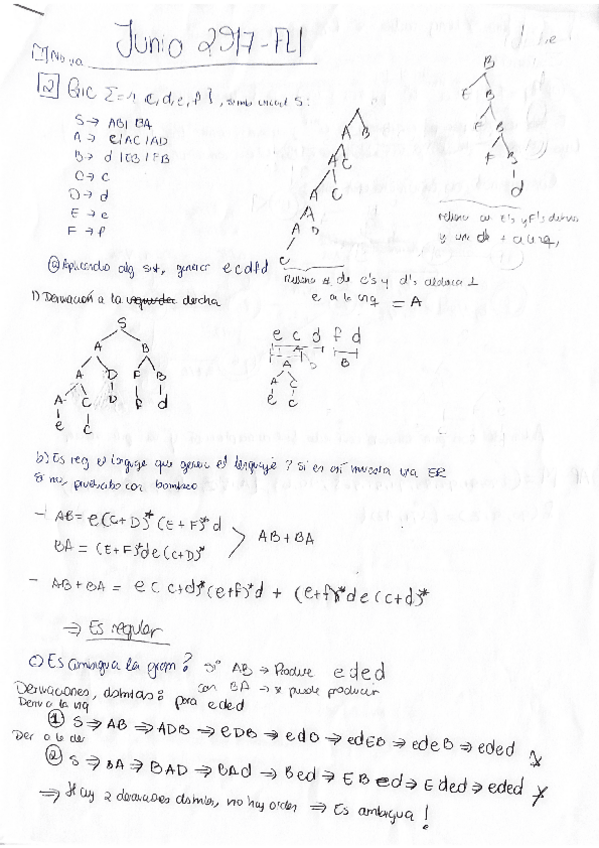 Junio 2017 - FLI
2 GIC Σ = { c, d, e, f }, S:
S → AB | BA
A → e | AC | AD
B → d | EB | FB
C → c
D → d
E → e
F → f
A B
A C
A C
A D
e
B
E B
F B
F B
d
rellena con E's y F's detras
y una d
a) Aplicando alg sint, generar ecdfd
rellena de c's y d's
e a la izq = A
1) Derivación a la derecha
S
A B
A D F B
A C D f d
e c
e c d f d
A D B
A C
e c
b) Es reg el lenguaje que genera el lenguaje? Si es así muestra una ER
Si no, pruébalo con bombeo
- AB = e(C+D)* (E+F)* d
BA = (E+F)* d e (C+D)* > AB + BA
- AB + BA = e ( c+d)* (e+f)* d + (e+f)* d e (c+d)*
⇒ Es regular
c) Es ambigua la gram? Si AB → Produce eded
con BA → puede producir
Derivaciones distintas: para eded
Deriv a la izq
① S ⇒ AB ⇒ ADB ⇒ eDB ⇒ edB ⇒ edEB ⇒ edeB ⇒ eded
Der a la der
② S ⇒ BA ⇒ BAD ⇒ BAd ⇒ Bed ⇒ EBed ⇒ Eded ⇒ eded
⇒ Hay 2 derivaciones distintas, no hay orden ⇒ Es ambigua!